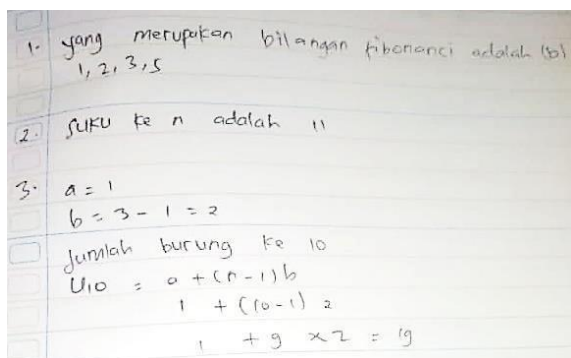 1. yang merupakan bilangan fibonanci adalah (b)
1, 2, 3, 5
2. suku ke n adalah 11
3. a = 1
b = 3 - 1 = 2
Jumlah burung ke 10
U10 = a + (n-1)b
1 + (10-1) 2
1 + 9 x 2 = 19